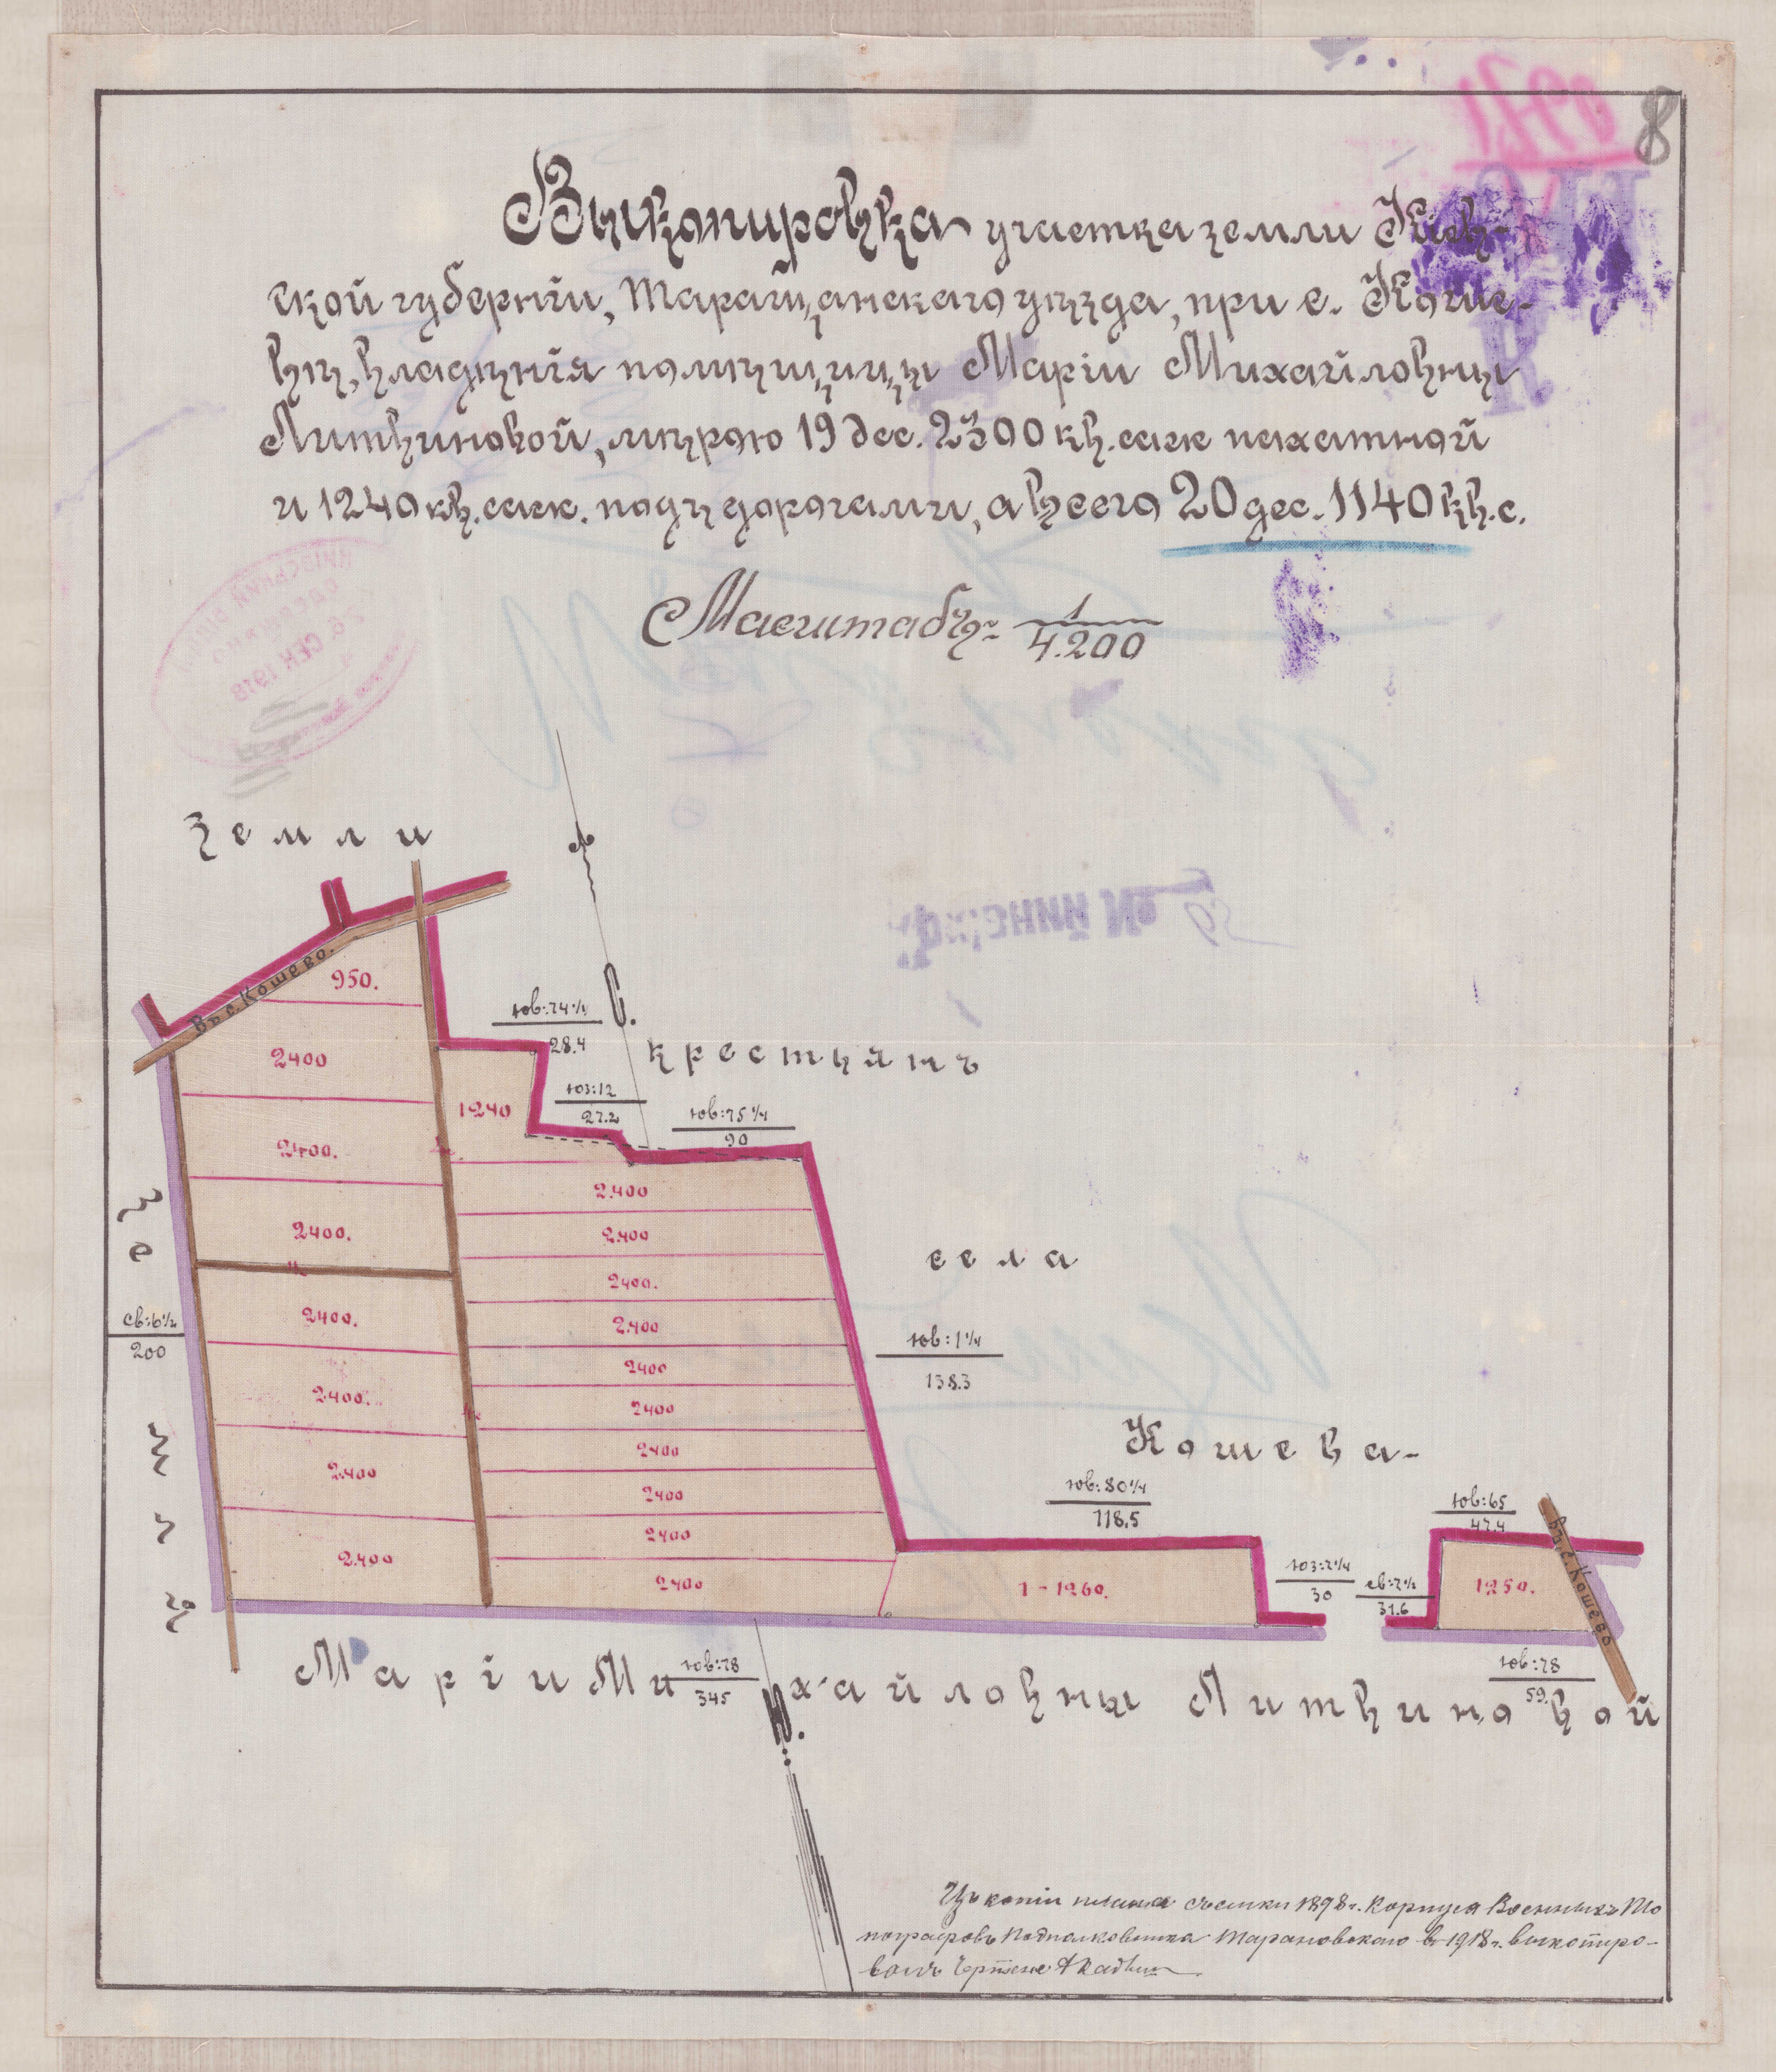 8
Выкопировка участка земли Кіев-
ской губерніи, Таращанскаго уѣзда, при с. Коше-
вѣ, владѣнія помѣщицы Маріи Михайловны
Литвиновой, мѣрою 19 дес. 2300 кв. саж пахатной
и 1240 кв. саж. подъ дорогами, а всего 20 дес. 1140 кв. с.
Масштабъ 1/4.200
Земли
Въ с. Кошево.
950.
2400
2400.
2400.
2400.
2400.
2400
2.400
1240
юв:74¼
28.4
С.
крестьянъ
юз:12
27.2
юв:75¼
90
2.400
2.400
2400.
2.400
2400
2400
2400
2400
2400
2400
села
юв:1¼
138.3
Земля
св:6½
200
Кошева-
юв:80¼
118.5
юв:65
47.4
Въ с. Кошево
1-1260.
юз:7¼
30
св:7½
31.6
1250.
Маріи Михайловны Литвиновой
юв:78
345
юв:78
59.
Ю.
Съ копіи плана съемки 1898 г. Корпуса Военныхъ То
пографовъ Подполковника Тарановскаго въ 1918 г. выкопиро-
валъ